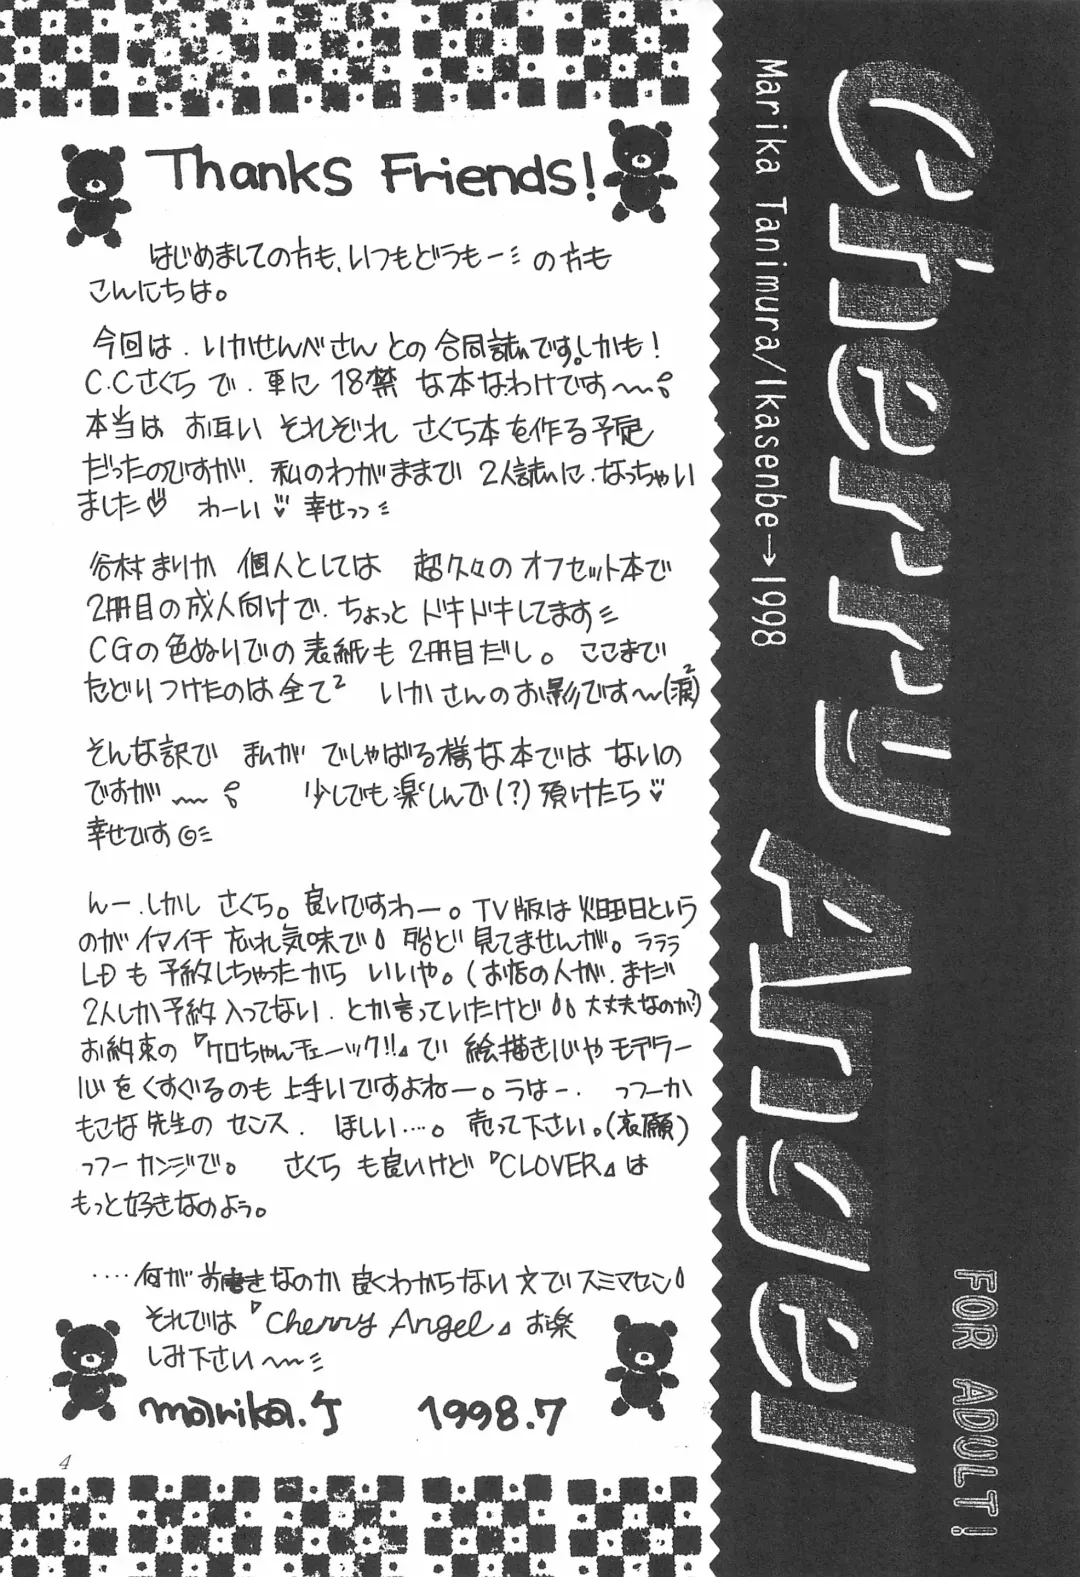 Thanks Friends!
はじめましての方も、いつもどうもーの方も
こんにちは。
今回は、いかせんべさんとの合同誌です。しかも!
C.Cさくらで、更に18禁な本なわけです〜
本当はお互いそれぞれさくら本を作る予定
だったのですが、私のわがままで2人誌に、なっちゃい
ました♡ わーい 幸せっっ
谷村まりか個人としては 超久々のオフセット本で
2冊目の成人向けで、ちょっとドキドキしてます
CGの色ぬりでの表紙も2冊目だし。ここまで
たどりつけたのは全て² いかさんのお影です〜(涙)²
そんな訳で まんが でしゃばる様な本では ないの
ですが〜 少しでも楽しんで(?)頂けたら♡
幸せです◎
んー、しかし さくら。良いですわー。TV版は火曜日という
のがイマイチ 忘れ気味で 殆ど見てませんが。ラララ
LDも予約しちゃったから いいや。(お店の人が、まだ
2人しか予約入ってない、とか言っていたけど 大丈夫なのか?)
お約束の『ケロちゃんチェーック!!』で 絵描き心やモデラー
心をくすぐるのも上手いですよねー。うはー、 っつーか
もこな先生の センス、 ほしい…。売って下さい。(哀願)
っつーカンジで。 さくらも良いけど『CLOVER』は
もっと好きなのよう。
‥‥何がお書きなのか 良くわからない文でスミマセン
それでは『Cherry Angel』お楽
しみ下さい〜
marika.T 1998.7
4
Cherry Angel
Marika Tanimura/Ikasenbe→1998
FOR ADULT!